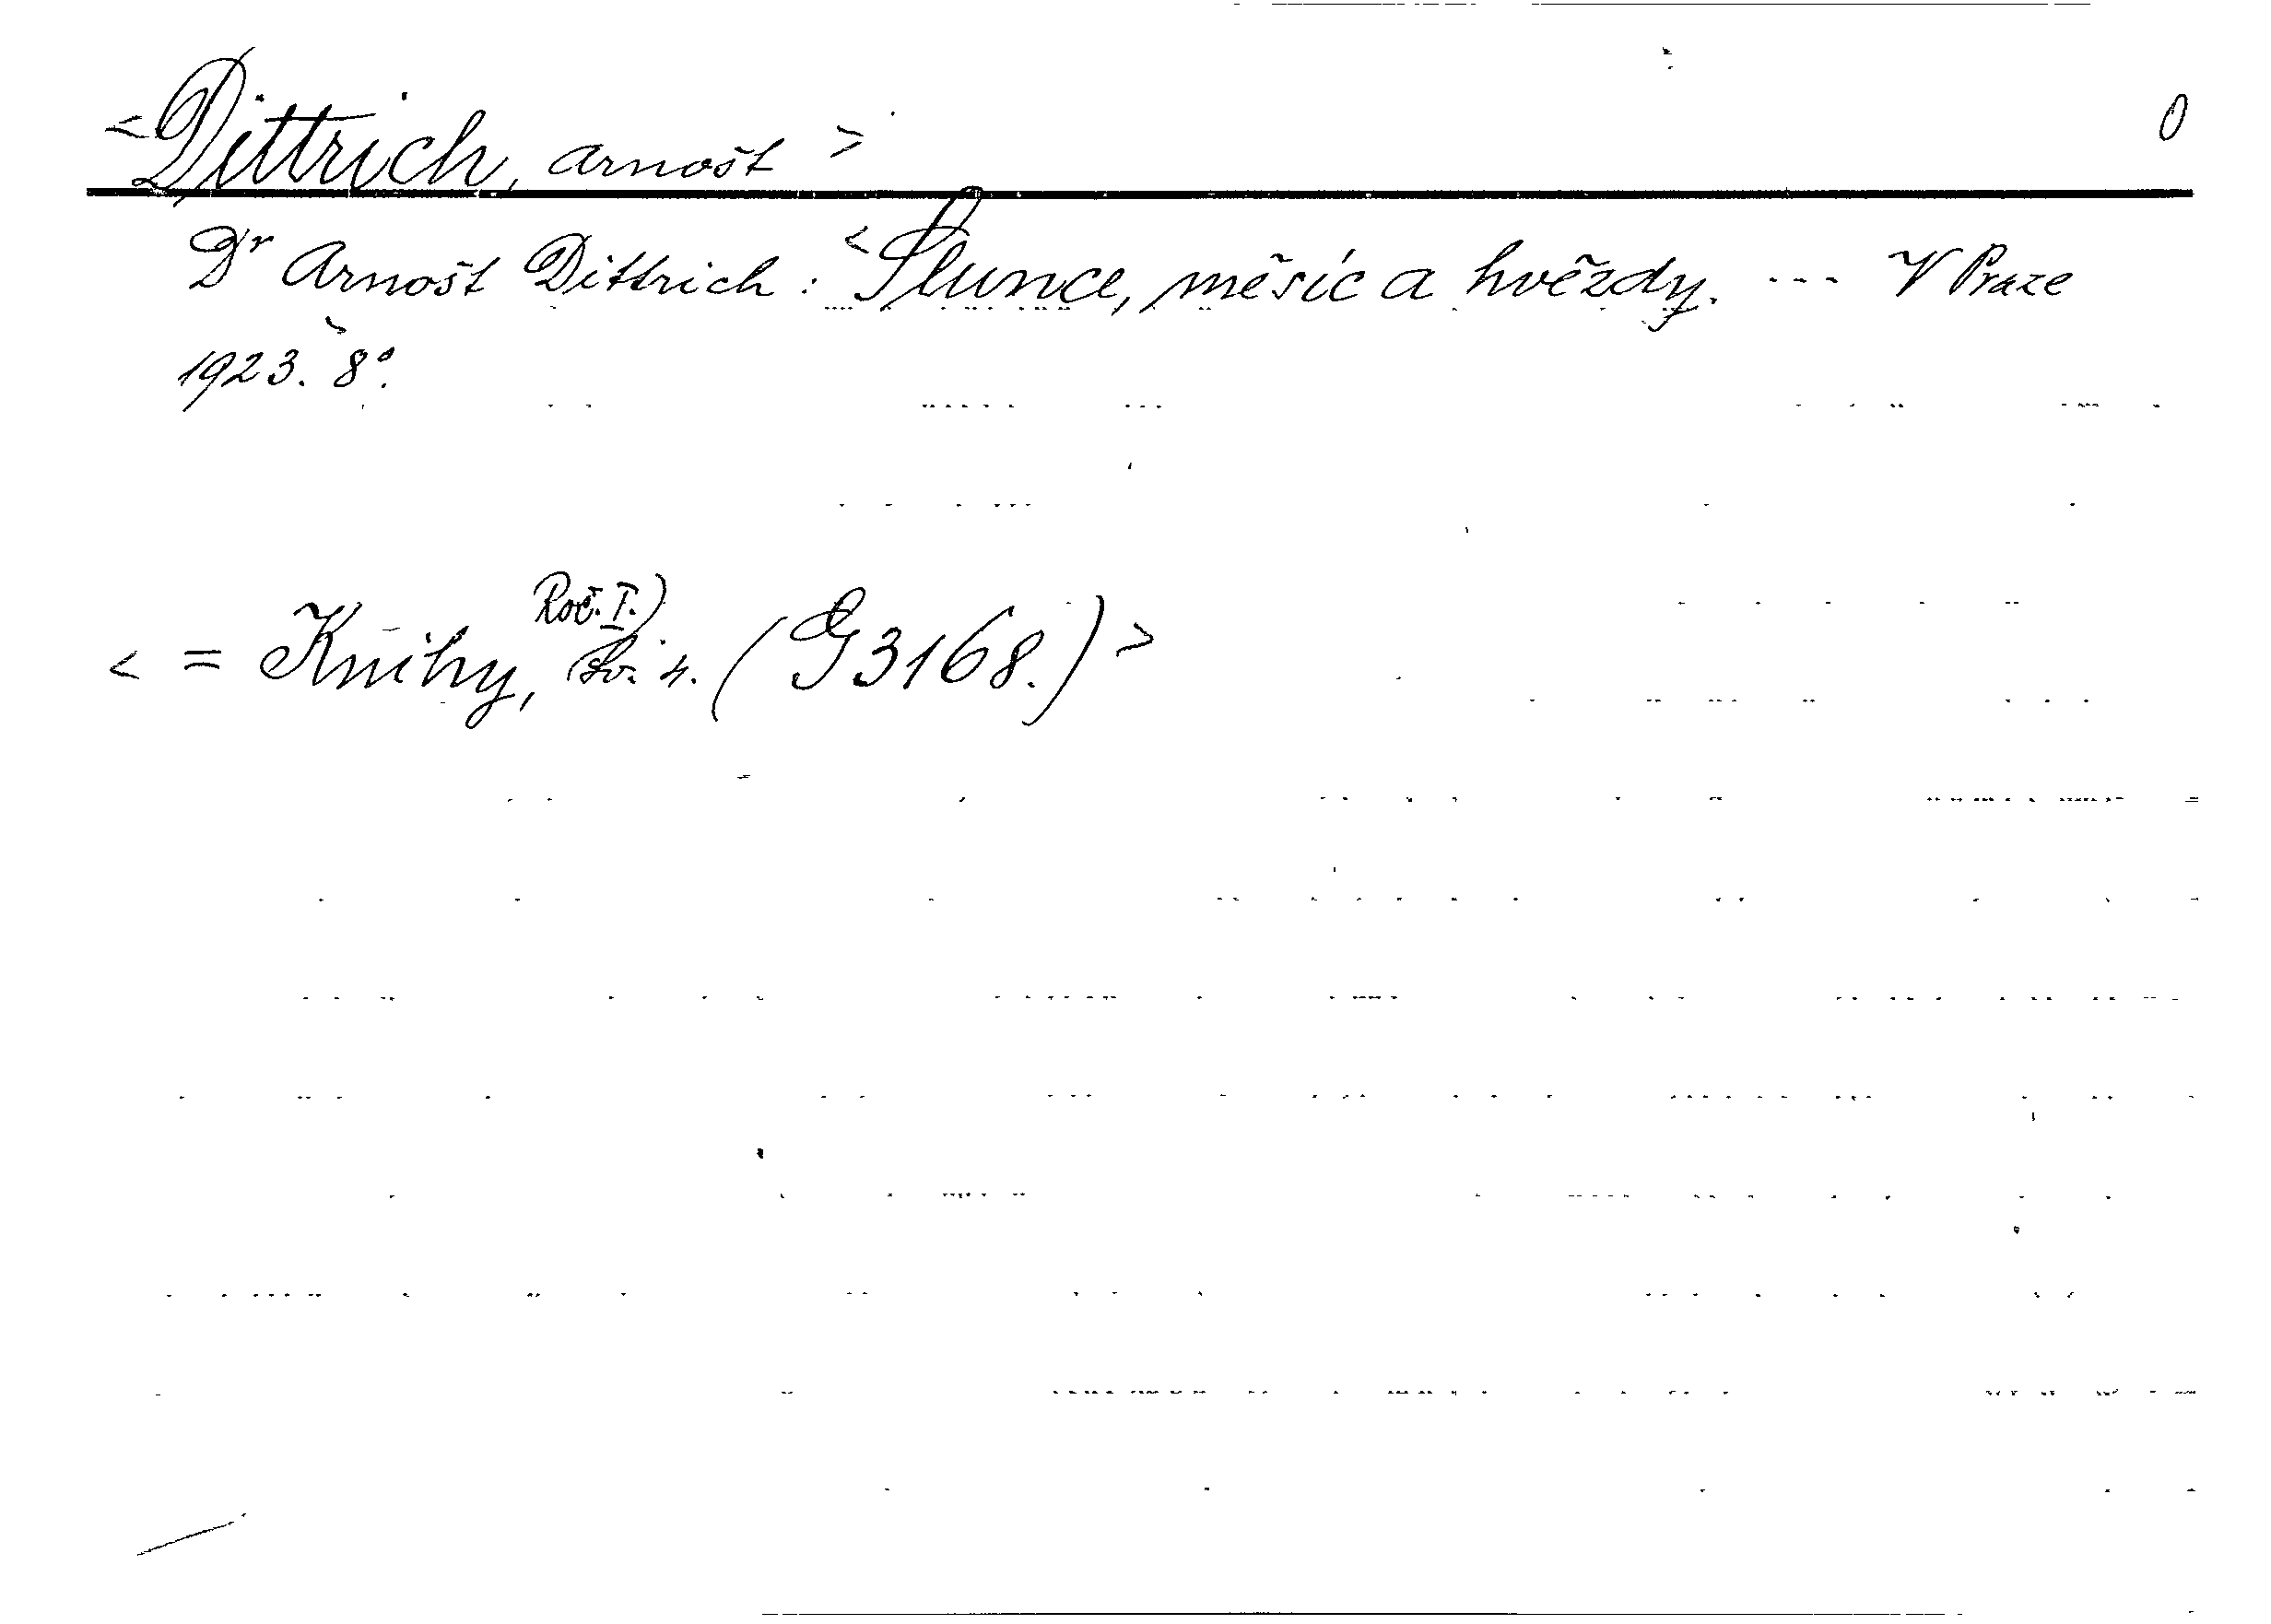 <Dittrich, Arnošt> 0
Dr Arnošt Dittrich: <Slunce, měsíc a hvězdy. --- V Praze
1923. 8°.
Roč. I.)
< = Knihy, (Sv. 4. (G 3168.) >